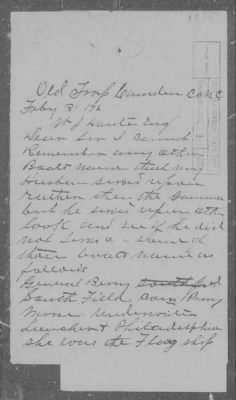 Old Trap Camden Co NC
Feby 3 - 1
W J Esq
Dear Sir I cannot
Remember any other
Boats name that my
Husban servd upon
ruther then the
but he servd upon other
look and see if he did
not serv a - some of
their boats named as
follows
General Berry Southford
South Field, Com Perry
Morse Underwriter
& Philadelphia
she was the Flag ship